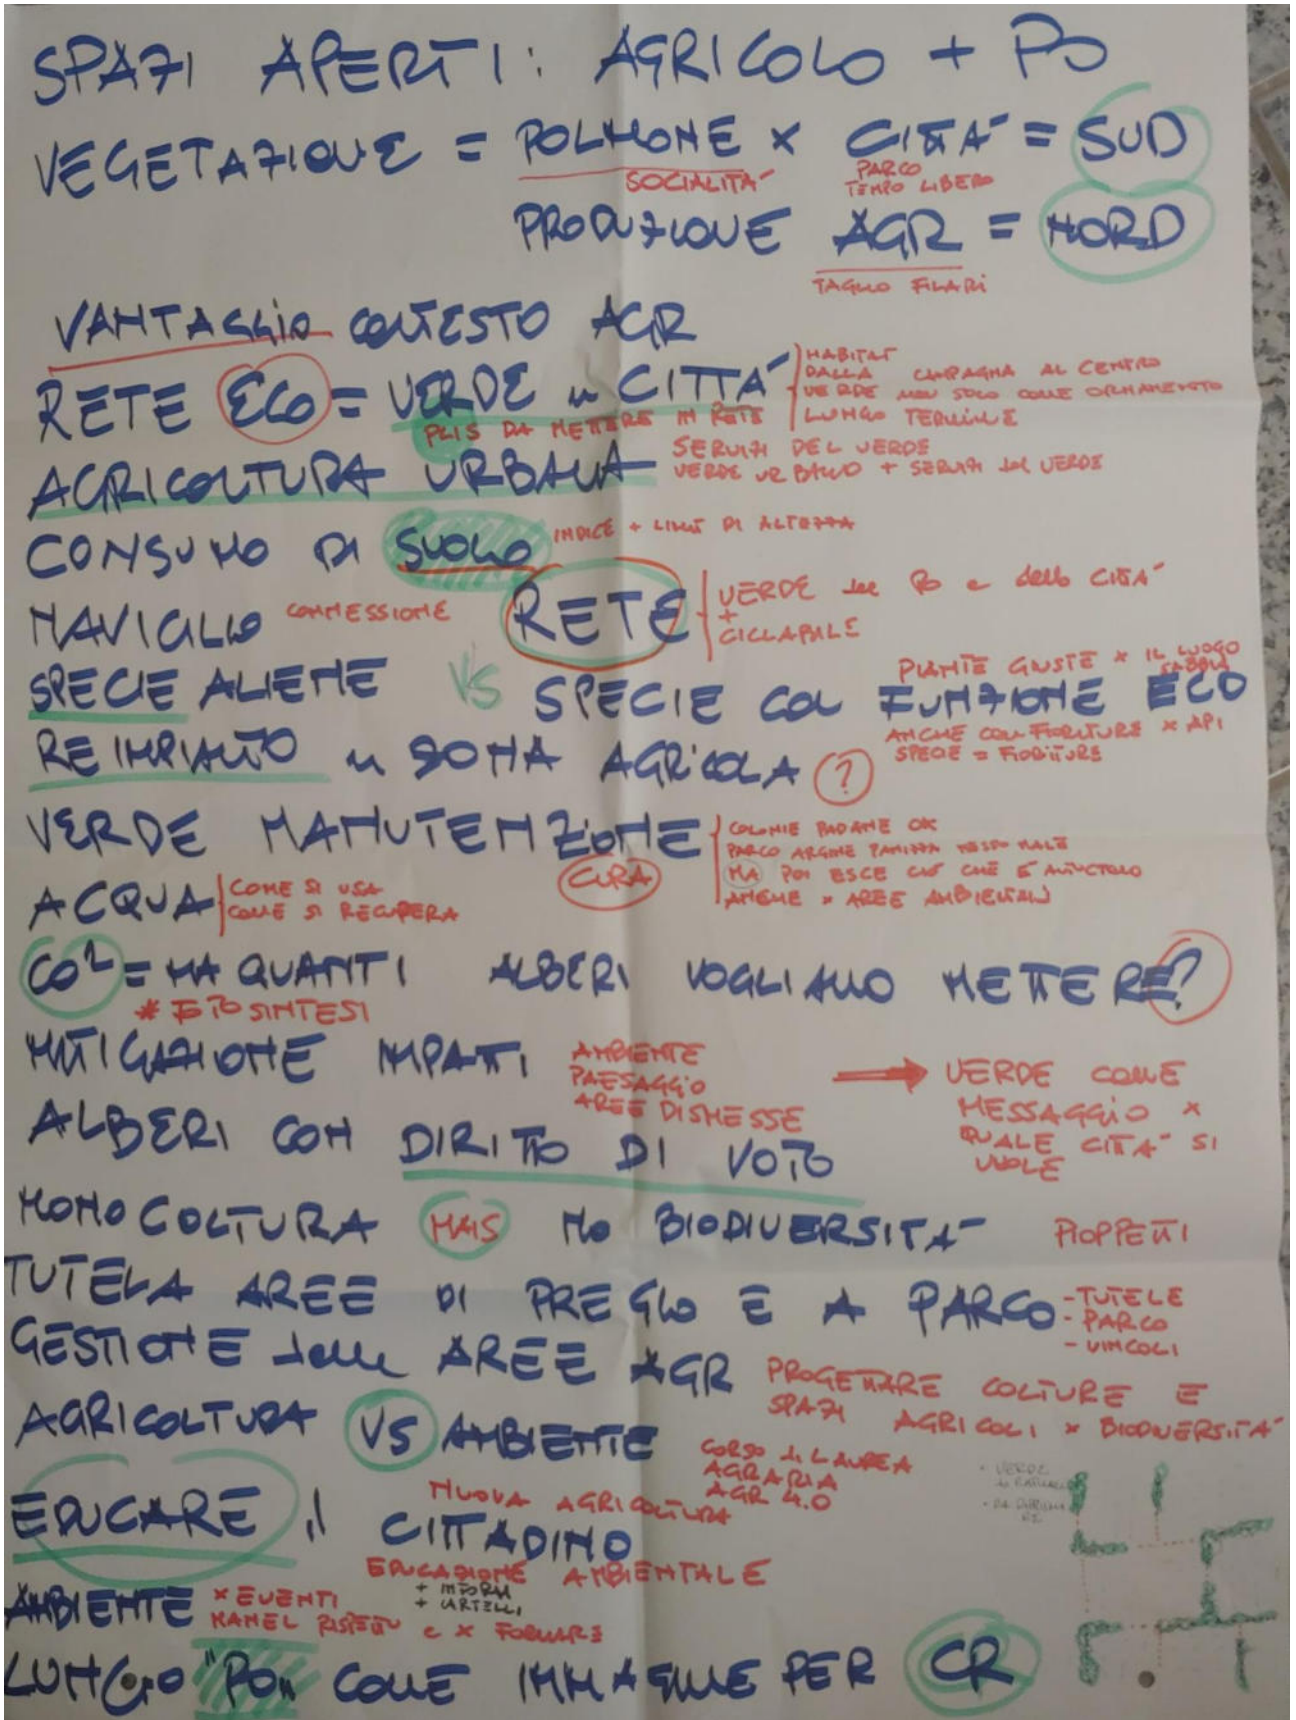 SPAZI APERTI: AGRICOLO + PO
VEGETAZIONE = POLMONE x CITTA' = SUD
SOCIALITA'
PARCO
TEMPO LIBERO
PRODUZIONE AGR = NORD
TAGLIO FILARI
VANTAGGIO CONTESTO AGR
RETE ECO = VERDE in CITTA'
HABITAT
DALLA CAMPAGNA AL CENTRO
VERDE NON SOLO COME ORNAMENTO
LUNGO TERMINE
PLIS DA METTERE IN RETE
AGRICOLTURA URBANA
SERVIZI DEL VERDE
VERDE URBANO + SERVIZI del VERDE
CONSUMO DI SUOLO
INDICE + LIMITI DI ALTEZZA
NAVIGLIO CONNESSIONE
RETE
VERDE del PO e della CITTA'
+
CICLABILE
SPECIE ALIENE VS SPECIE CON FUNZIONE ECO
PIANTE GIUSTE x IL LUOGO
SABBIA
ANCHE CON FIORITURE x API
SPECIE = FIORITURE
REIMPIANTO in ZONA AGRICOLA ?
VERDE MANUTENZIONE
CURA
COLONIE PADANE OK
PARCO ARGINE MALE
MA POI ESCE CIO' CHE E'
ANCHE x AREE AMBIENTALI
ACQUA
COME SI USA
COME SI RECUPERA
CO2 = MA QUANTI ALBERI VOGLIAMO METTERE?
* FOTOSINTESI
MITIGAZIONE IMPATTI
AMBIENTE
PAESAGGIO
AREE DISMESSE
→ VERDE COME
MESSAGGIO x
QUALE CITTA' SI
VUOLE
ALBERI CON DIRITTO DI VOTO
MONOCOLTURA MAIS NO BIODIVERSITA' PIOPPETI
TUTELA AREE DI PREGIO E A PARCO
- TUTELE
- PARCO
- VINCOLI
GESTIONE delle AREE AGR
PROGETTARE COLTURE E
SPAZI AGRICOLI x BIODIVERSITA'
AGRICOLTURA VS AMBIENTE
CORSO di LAUREA
AGRARIA
AGR 4.0
NUOVA AGRICOLTURA
EDUCARE il CITTADINO
EDUCAZIONE AMBIENTALE
+ INFORM
+ CARTELLI
AMBIENTE x EVENTI
NANEL RISPETTO e x FORMARE
VERDE
LUNGO "PO" COME IMMAGINE PER CR